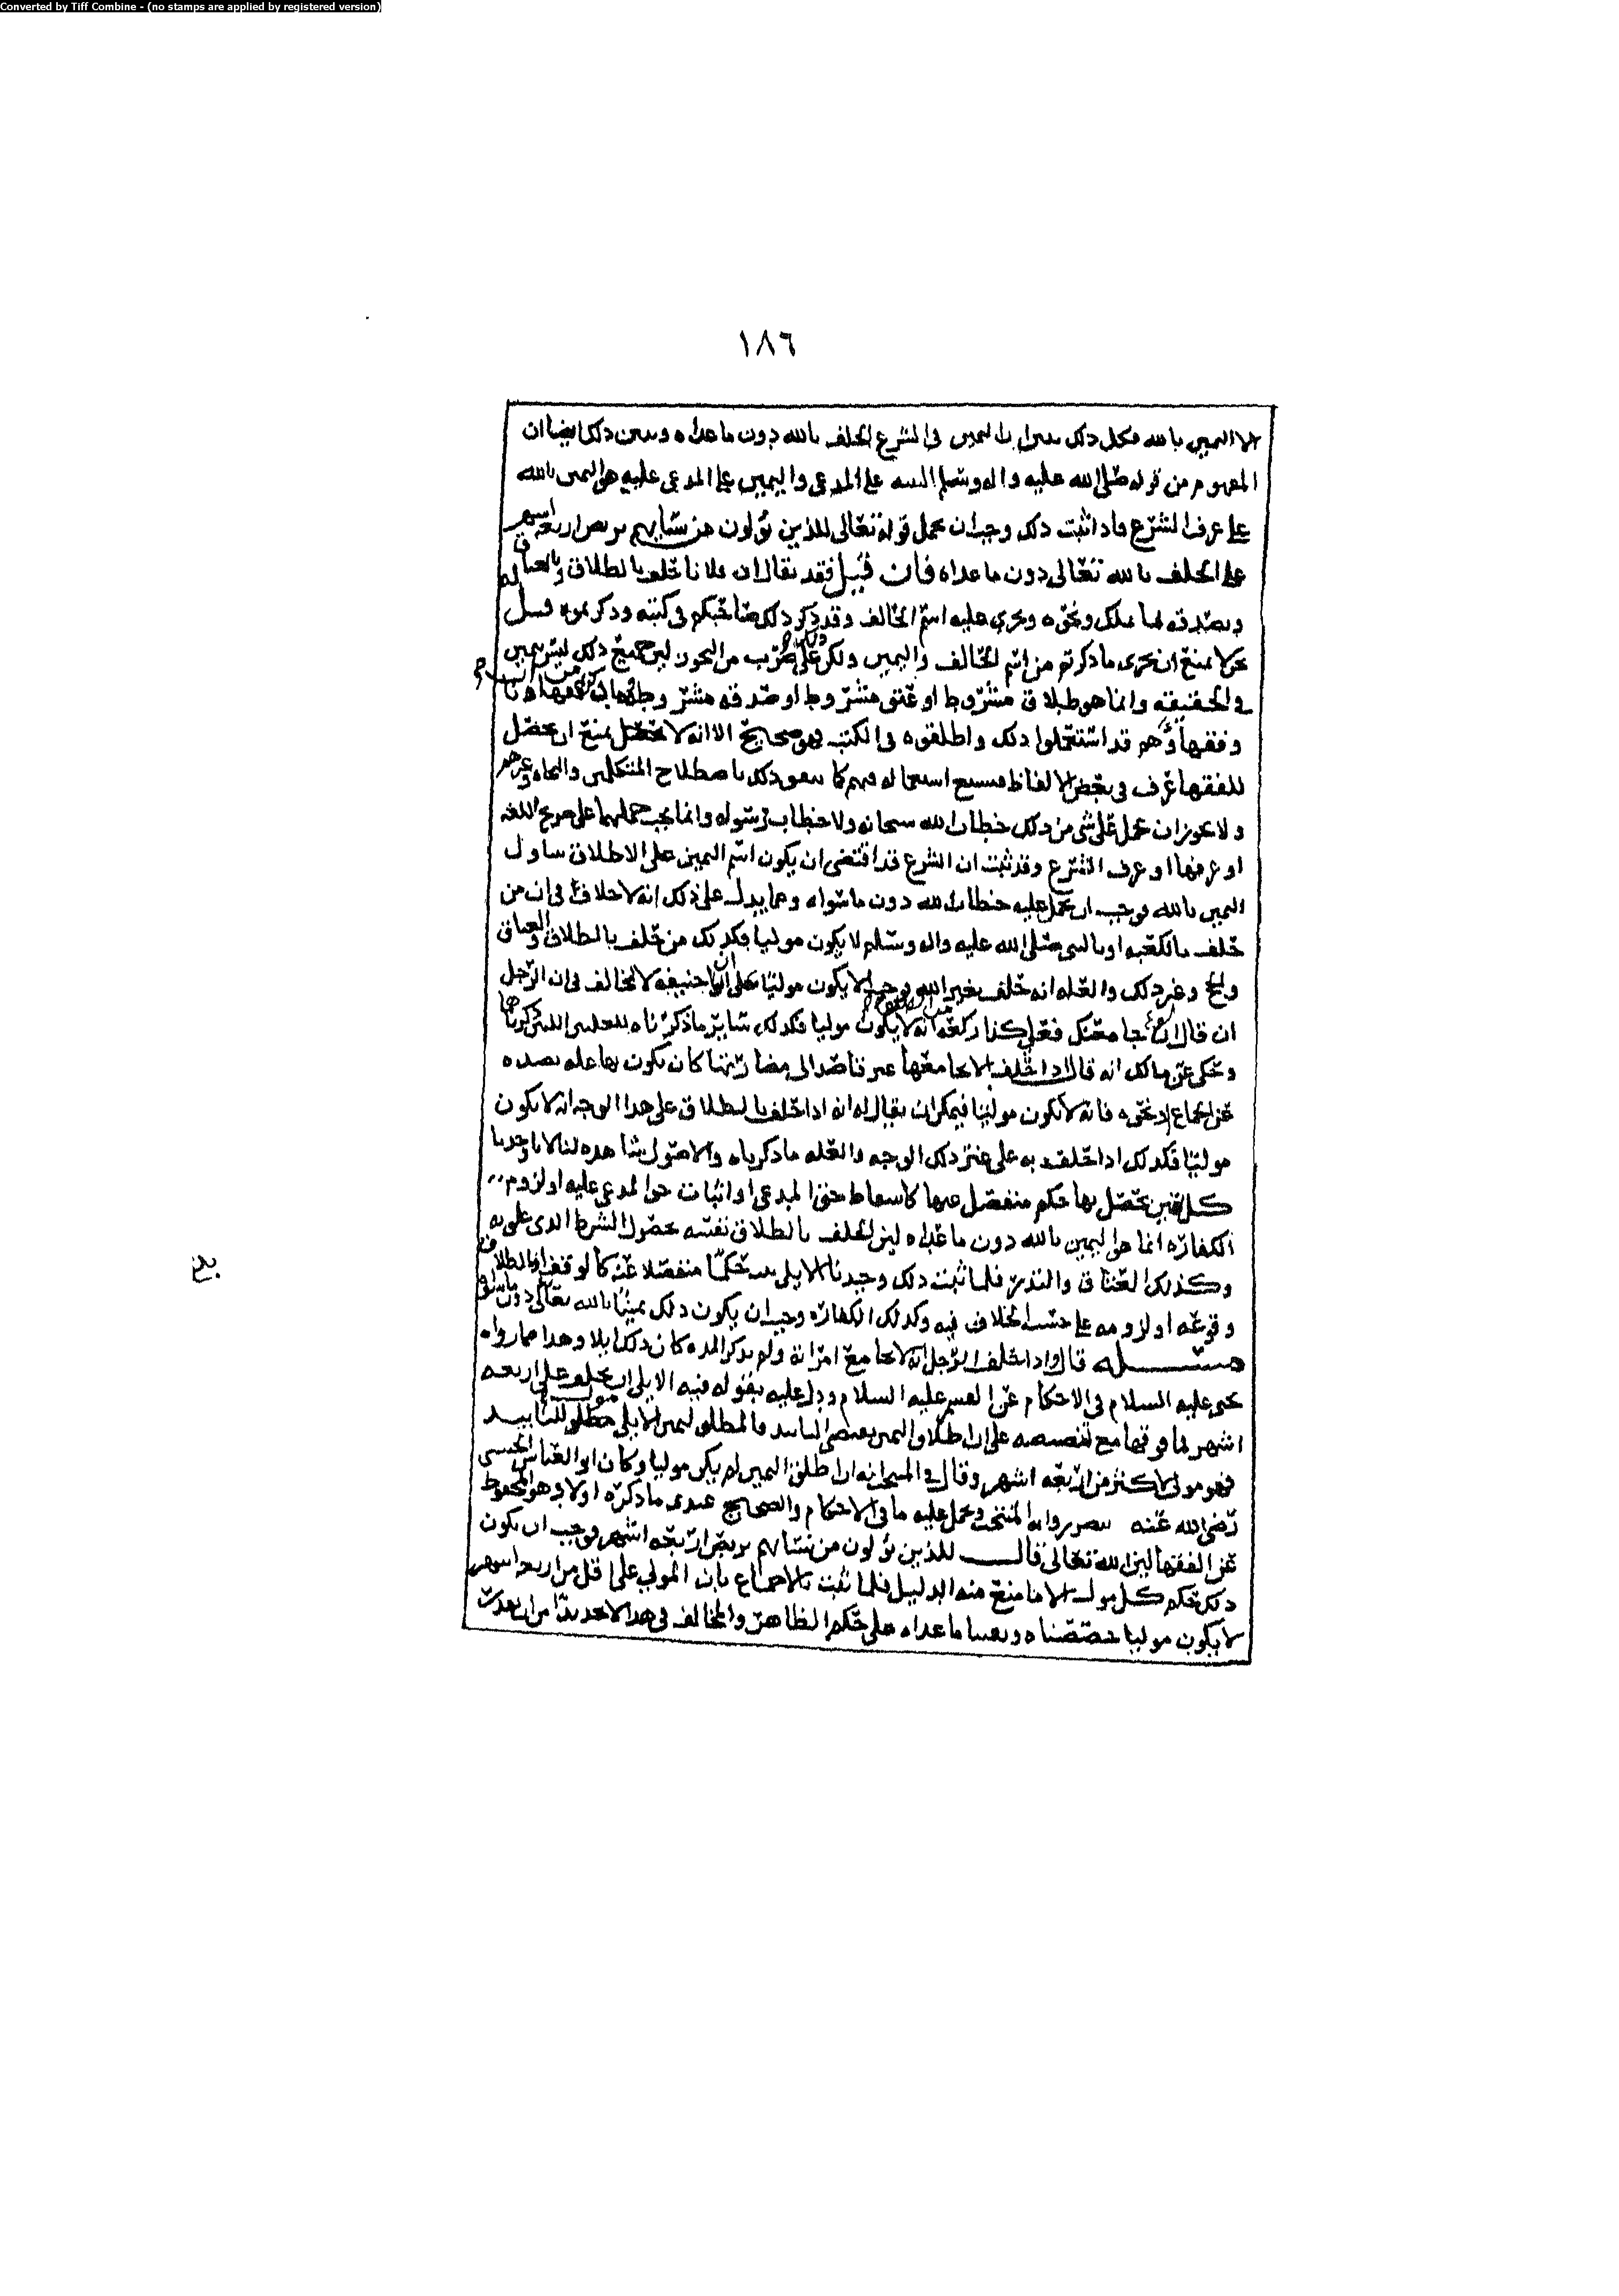 Converted by Tiff Combine - (no stamps are applied by registered version)
١٨٦
الا اليمين بالله فكل ذلك يبين ان اليمين في الشرع الحلف بالله دون ما عداه ويبين ذلك ايضا ان
المفهوم من قوله صلى الله عليه واله وسلم البينه على المدعي واليمين على المدعى عليه هو اليمين بالله
على عرف الشرع فاذا ثبت ذلك وجب ان يحمل قوله تعالى للذين يؤلون من نسايهم تربص اربعه اشهر
على الحلف بالله تعالى دون ما عداه فان قيل فقد يقال ان فلانا حلف بالطلاق وبالعتاق
وبصدقه لما يملك ونحوه ويجري عليه اسم الحالف وقد ذكر ذلك صاحبكم في كتبه وذكر نحوه قيل له
نحن لا نمنع ان يجري ما ذكرتم من اسم الحالف واليمين ولكن على ضرب من التجوز ليس جميع ذلك ليس بيمين
في الحقيقه وانما هو طلاق مشروط او عتق مشروط او صدقه مشروطه
وفقهاؤهم قد استعملوا ذلك واطلقوه في الكتب فهو صحيح الا انه لا يمنع ان يحصل
للفقها عرف في بعض الالفاظ استعماله فيهم كما ذلك باصطلاح المتكلمين والنحاه وغيرهم
ولا يجوز ان يحمل على شي من ذلك خطاب الله سبحانه ولا خطاب رسوله وانما يجب حملهما على صريح اللغه
او عرفها او عرف الشرع وقد ثبت ان الشرع قد اقتضى ان يكون اسم اليمين على الاطلاق يتناول
اليمين بالله فوجب ان يحمل عليه خطاب الله دون ما سواه ومما يدل على ذلك انه لا خلاف في ان من
حلف بالكعبه او بالنبي صلى الله عليه واله وسلم لا يكون موليا فكذلك من حلف بالطلاق والعتاق
والحج وغير ذلك والعله انه حلف بغير الله فوجب الا يكون موليا على ان ابا حنيفه لا يخالف في ان الرجل
ان قال ان جامعتك فعلي كذا ركعه انه لا يكون موليا فكذلك ساير ما ذكرناه
وحكي عن مالك انه قال اذا حلف الا يجامعها غير قاصد الى مضارتها كان يكون بها عله يصده
عن الجماع او نحوه فانه لا يكون موليا فيمكن ان يقال له انه اذا حلف بالطلاق على هذا الوجه انه لا يكون
موليا فكذلك اذا حلف به على غير ذلك الوجه والعله ما ذكرناه والاصول شاهده لنا لانا وجدنا
كل يمين يحصل بها حكم منفصل عنها كاسقاط حق المدعي او اثبات حق المدعى عليه او لزوم
الكفاره انما هو اليمين بالله دون ما عداه ليس الحلف بالطلاق نفسه حصول الشرط الذي علق به
وكذلك العتاق والنذر فلما ثبت ذلك وجدنا الايلا حكما منفصلا عنه كالوقف او الطلاق
وقوعه او لزومه على حسب الخلاف فيه وكذلك الكفاره وجب ان يكون ذلك يمينا بالله تعالى دون ما سواه
مسئله قال واذا حلف الرجل انه لا يجامع امراته ولم يذكر المده كان ذلك ايلا وهذا مما رواه
يحيى عليه السلام في الاحكام عن القسم عليه السلام ودل عليه بقوله فيه الايلا ان يحلف على اربعه
اشهر فما فوقها مع تنصيصه على ان اطلاق اليمين يقتضي التابيد فالمطلق ليمين الايلا مطلق للتابيد
فهو مول لاكثر من اربعه اشهر وقال في المنتخب انه ان اطلق اليمين لم يكن موليا وكان ابو العباس الحسني
رضي الله عنه ينصر روايه المنتخب ويحمل عليه ما في الاحكام والصحيح عندي ما ذكره اولا وهو المحفوظ
عن الفقها ليس الله تعالى قال للذين يؤلون من نسايهم تربص اربعه اشهر فوجب ان يكون
ذلك حكم كل مول الا ما منع منه الدليل فلما ثبت بالاجماع بان المولي على اقل من اربعه اشهر
لا يكون موليا خصصناه وبقينا ما عداه على حكم الظاهر والمخالف في هذا لا يجد بدا من ان يعدل